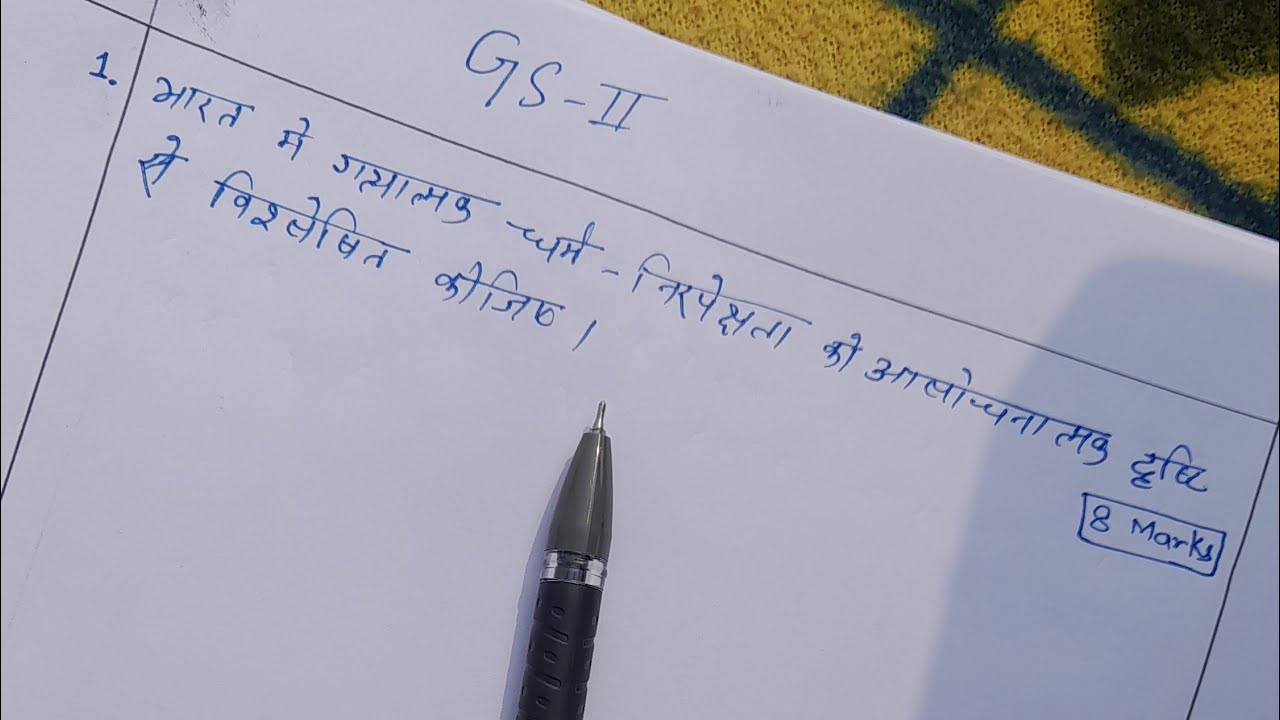 GS-II
1. भारत मे गत्यात्मक धर्म-निरपेक्षता की आलोचनात्मक दृष्टि
से विश्लेषित कीजिए।
8 Marks